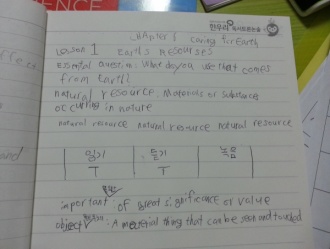 SCIENCE
CHAPTER 5 Caring for Earth
한우리 독서토론논술
Lesson 1 Earth's Resources
Essential question: What do you use that comes
from Earth?
natural resource: Materials or substance
occurring in nature
natural resource natural resource natural resource
읽기 듣기 녹음
T T
important: of great significance or value
object: A material thing that can be seen and touched
and